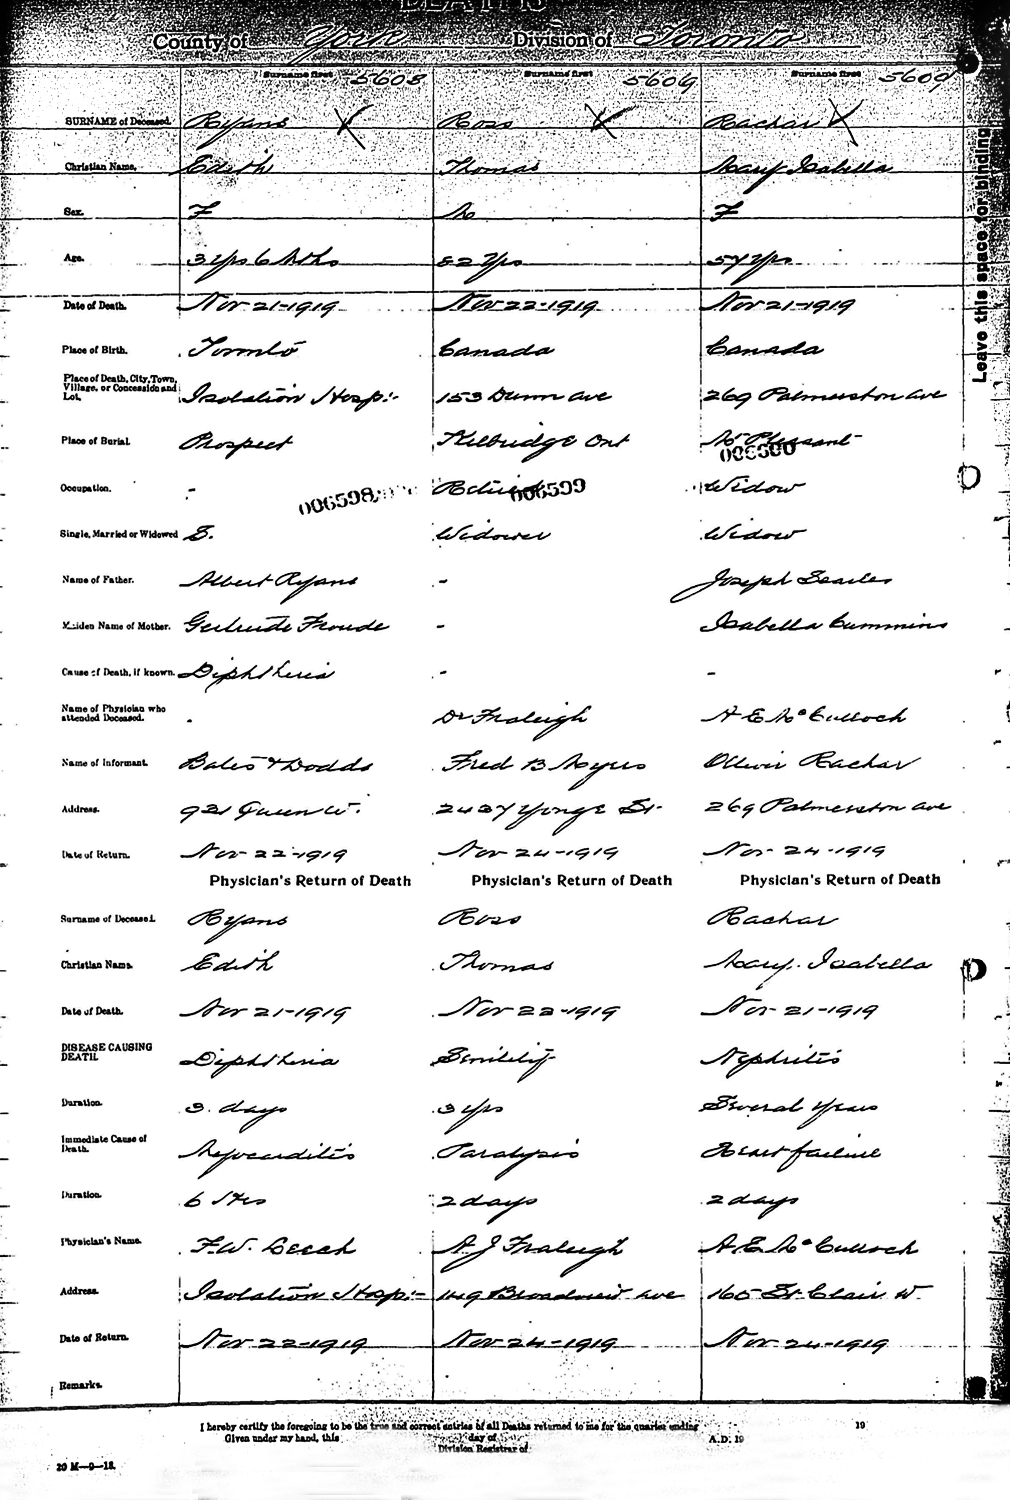 DEATHS
County of York Division of Toronto
Surname first 5608 Surname first 5609 Surname first
SURNAME of Deceased. Ryans Ross Rachar
Christian Name. Edith Thomas Mary Isabella
Sex. F M F
Age. 3 yrs 6 Mths 82 Yrs 57 Yrs
Date of Death. Nov 21-1919 Nov 22-1919 Nov 21-1919
Place of Birth. Toronto Canada Canada
Place of Death, City, Town,
Village, or Concession and
Lot. Isolation Hosp:- 153 Dunn ave 269 Palmerston ave
Place of Burial. Prospect Kilbridge Ont Mt Pleasant
006600
Occupation. - Retired Widow
006598 006599
Single, Married or Widowed S. Widower Widow
Name of Father. Albert Ryans - Joseph Searles
Maiden Name of Mother. Gertrude Froude - Isabella Cummins
Cause of Death, if known. Diphtheria - -
Name of Physician who
attended Deceased. . Dr Fraleigh A E McCulloch
Name of Informant. Bates & Dodds Fred B Ayres Oliver Rachar
Address. 931 Queen W. 2437 Yonge St 269 Palmerston ave
Date of Return. Nov 22-1919 Nov 24-1919 Nov 24-1919
Physician's Return of Death Physician's Return of Death Physician's Return of Death
Surname of Deceased. Ryans Ross Rachar
Christian Name. Edith Thomas Mary Isabella
Date of Death. Nov 21-1919 Nov 22-1919 Nov 21-1919
DISEASE CAUSING
DEATH. Diphtheria Senility Nephritis
Duration. 3 days 3 yrs Several years
Immediate Cause of
Death. Myocarditis Paralysis Heart failure
Duration. 6 Hrs 2 days 2 days
Physician's Name. F.W. Leech A J Fraleigh A.E. McCulloch
Address. Isolation Hosp:- 149 Broadview ave 160 St. Clair W.
Date of Return. Nov 22-1919 Nov 24-1919 Nov 24-1919
Remarks.
I hereby certify the foregoing to be the true and correct entries of all Deaths returned to me for the quarter ending 19
Given under my hand, this day of A.D. 19
Division Registrar of
20 M—9—18.
Leave this space for binding